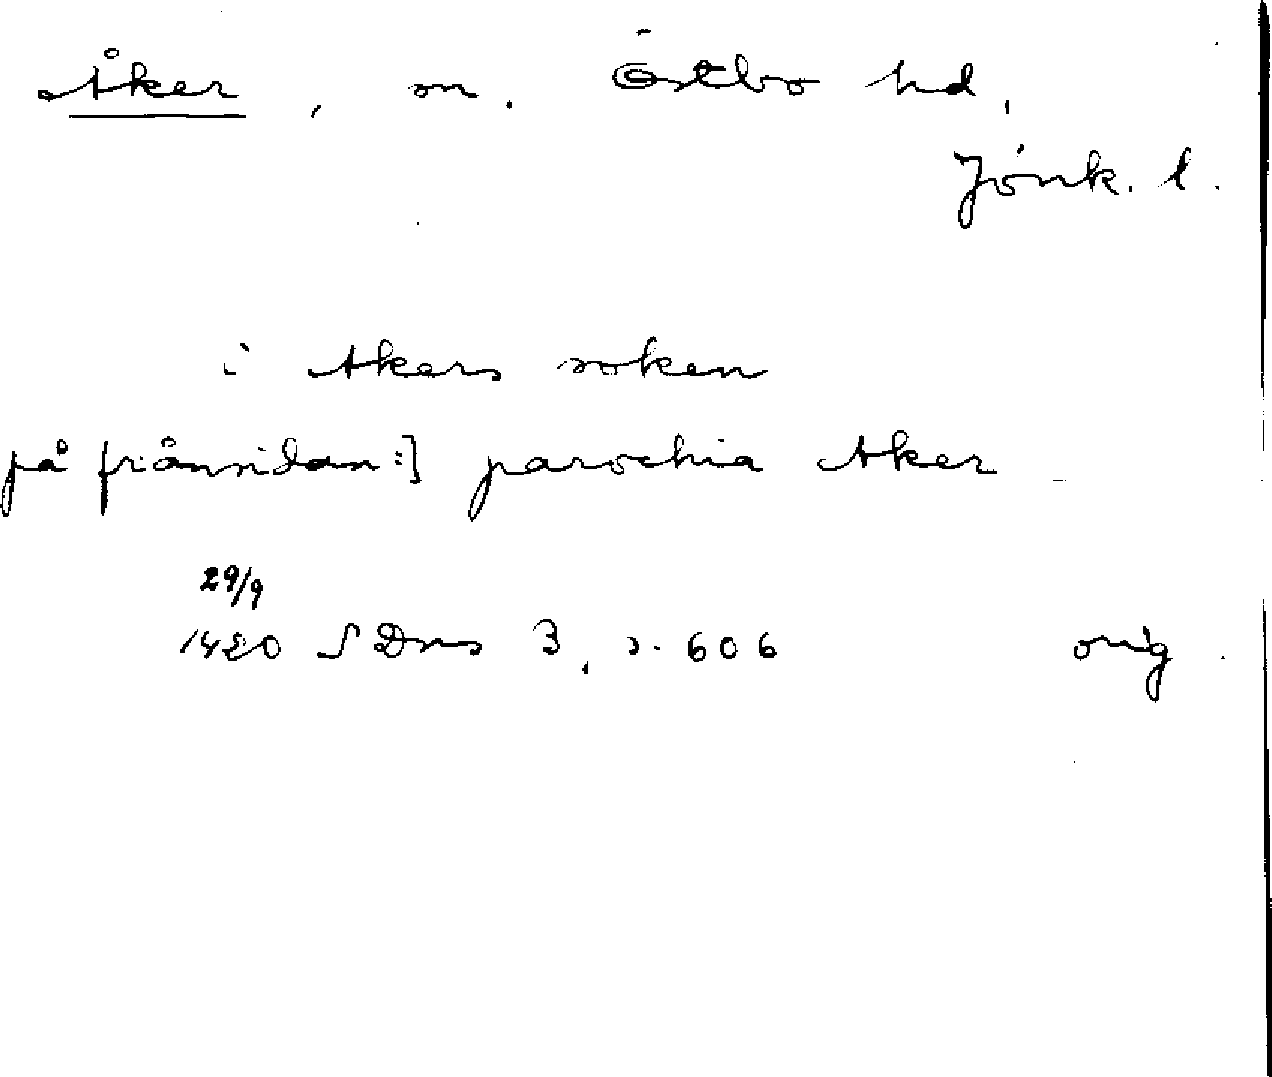 Åker, sn. Östbo hd,
Jönk. l.
i Akers soken
på frånsidan:] parochia Aker
29/9
1420 SDns 3, s. 606 orig.